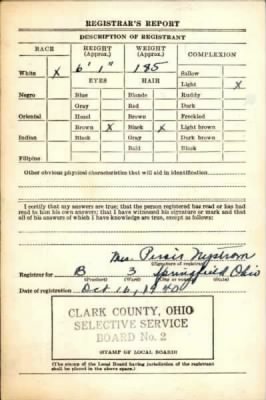 REGISTRAR'S REPORT
DESCRIPTION OF REGISTRANT
RACE HEIGHT (Approx.) WEIGHT (Approx.) COMPLEXION
White X 6' 1" 185 Sallow
EYES HAIR Light X
Negro Blue Blonde Ruddy
Gray Red Dark
Oriental Hazel Brown Freckled
Brown X Black X Light brown
Indian Black Gray Dark brown
Bald Black
Filipino
Other obvious physical characteristics that will aid in identification
I certify that my answers are true; that the person registered has read or has had
read to him his own answers; that I have witnessed his signature or mark and that
all of his answers of which I have knowledge are true, except as follows:
Mrs. Persis Nystrom
(Signature of registrar)
Registrar for B 3 Springfield Ohio
(Precinct) (Ward) (City or county) (State)
Date of registration Oct 16, 1940
CLARK COUNTY, OHIO
SELECTIVE SERVICE
BOARD No. 2
(STAMP OF LOCAL BOARD)
(The stamp of the Local Board having jurisdiction of the registrant
shall be placed in the above space.)